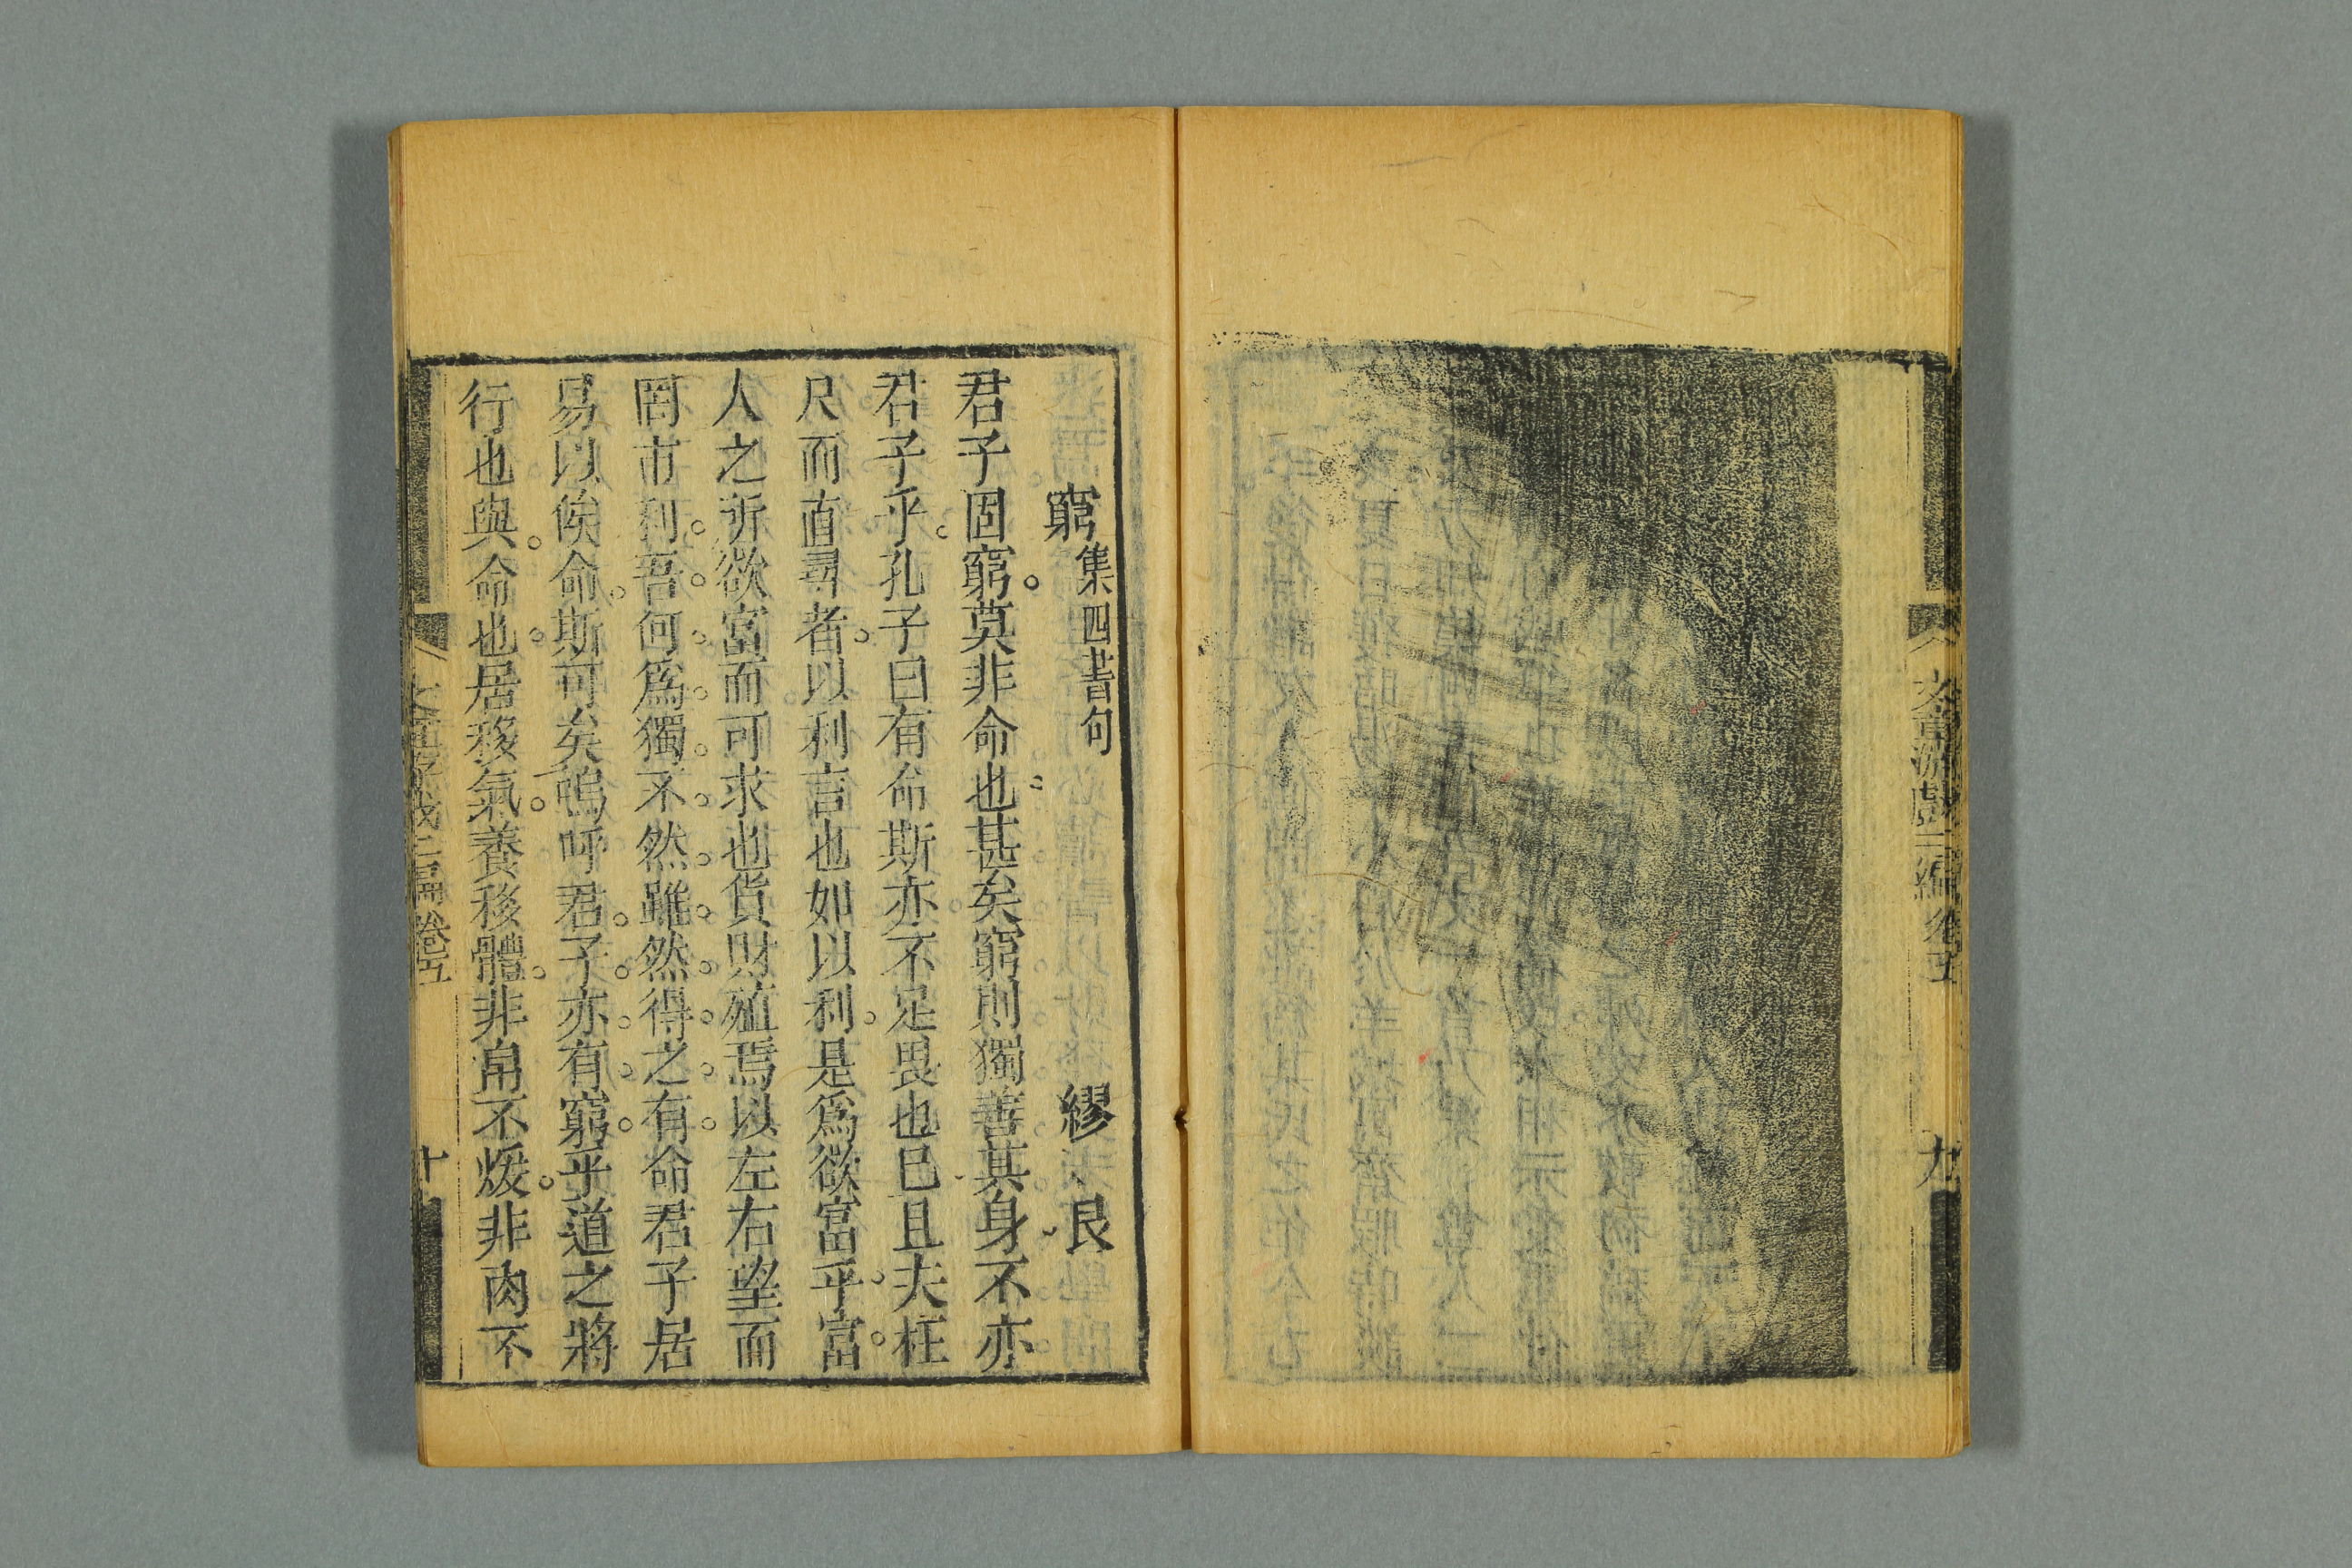 文章游戲二編 卷五 九
窮 集四書句 繆 艮
君子固窮莫非命也甚矣窮則獨善其身不亦
君子乎孔子曰有命斯亦不足畏也已且夫枉
尺而直尋者以利言也如以利是爲欲富乎富
人之所欲富而可求也貨財殖焉以左右望而
罔市利吾何爲獨不然雖然得之有命君子居
易以俟命斯可矣嗚呼君子亦有窮乎道之將
行也與命也居移氣養移體非帛不煖非肉不
文章游戲二編 卷五 十